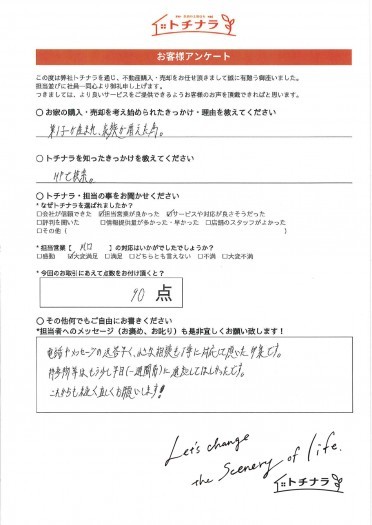 トチナラ
お客様アンケート
この度は弊社トチナラを通じ、不動産購入・売却をお任せ頂きまして誠に有難う御座いました。
担当並びに社員一同心より御礼申し上げます。
つきましては、より良いサービスをご提供できるようお客様のお声を頂戴できればと思います。
〇 お家の購入・売却を考え始められたきっかけ・理由を教えてください
第1子が産まれ、家族が増えた為。
〇 トチナラを知ったきっかけを教えてください
HPで検索。
〇 トチナラ・担当の事をお聞かせください
* なぜトチナラを選ばれましたか?
□会社が信頼できた ☑担当営業が良かった ☑サービスや対応が良さそうだった
□評判を聞いた □情報提供量が多かった・早かった □店舗のスタッフがよかった
□その他 ( )
* 担当営業【 川口 】の対応はいかがでしたでしょうか?
□感動 ☑大変満足 □満足 □どちらとも言えない □不満 □大変不満
* 今回のお取引にあえて点数をお付け頂くと?
90 点
〇 その他何でもご自由にお書きください
*担当者へのメッセージ(お褒め、お叱り)も是非宜しくお願い致します!
電話やメッセージの返答早く、小さな相談も丁寧に対応して頂いた印象です。
持参物等は、もう少し早目(一週間前)に連絡してほしかったです。
これからも末永く宜しくお願いします!
Let's change
the Scenery of life.
トチナラ